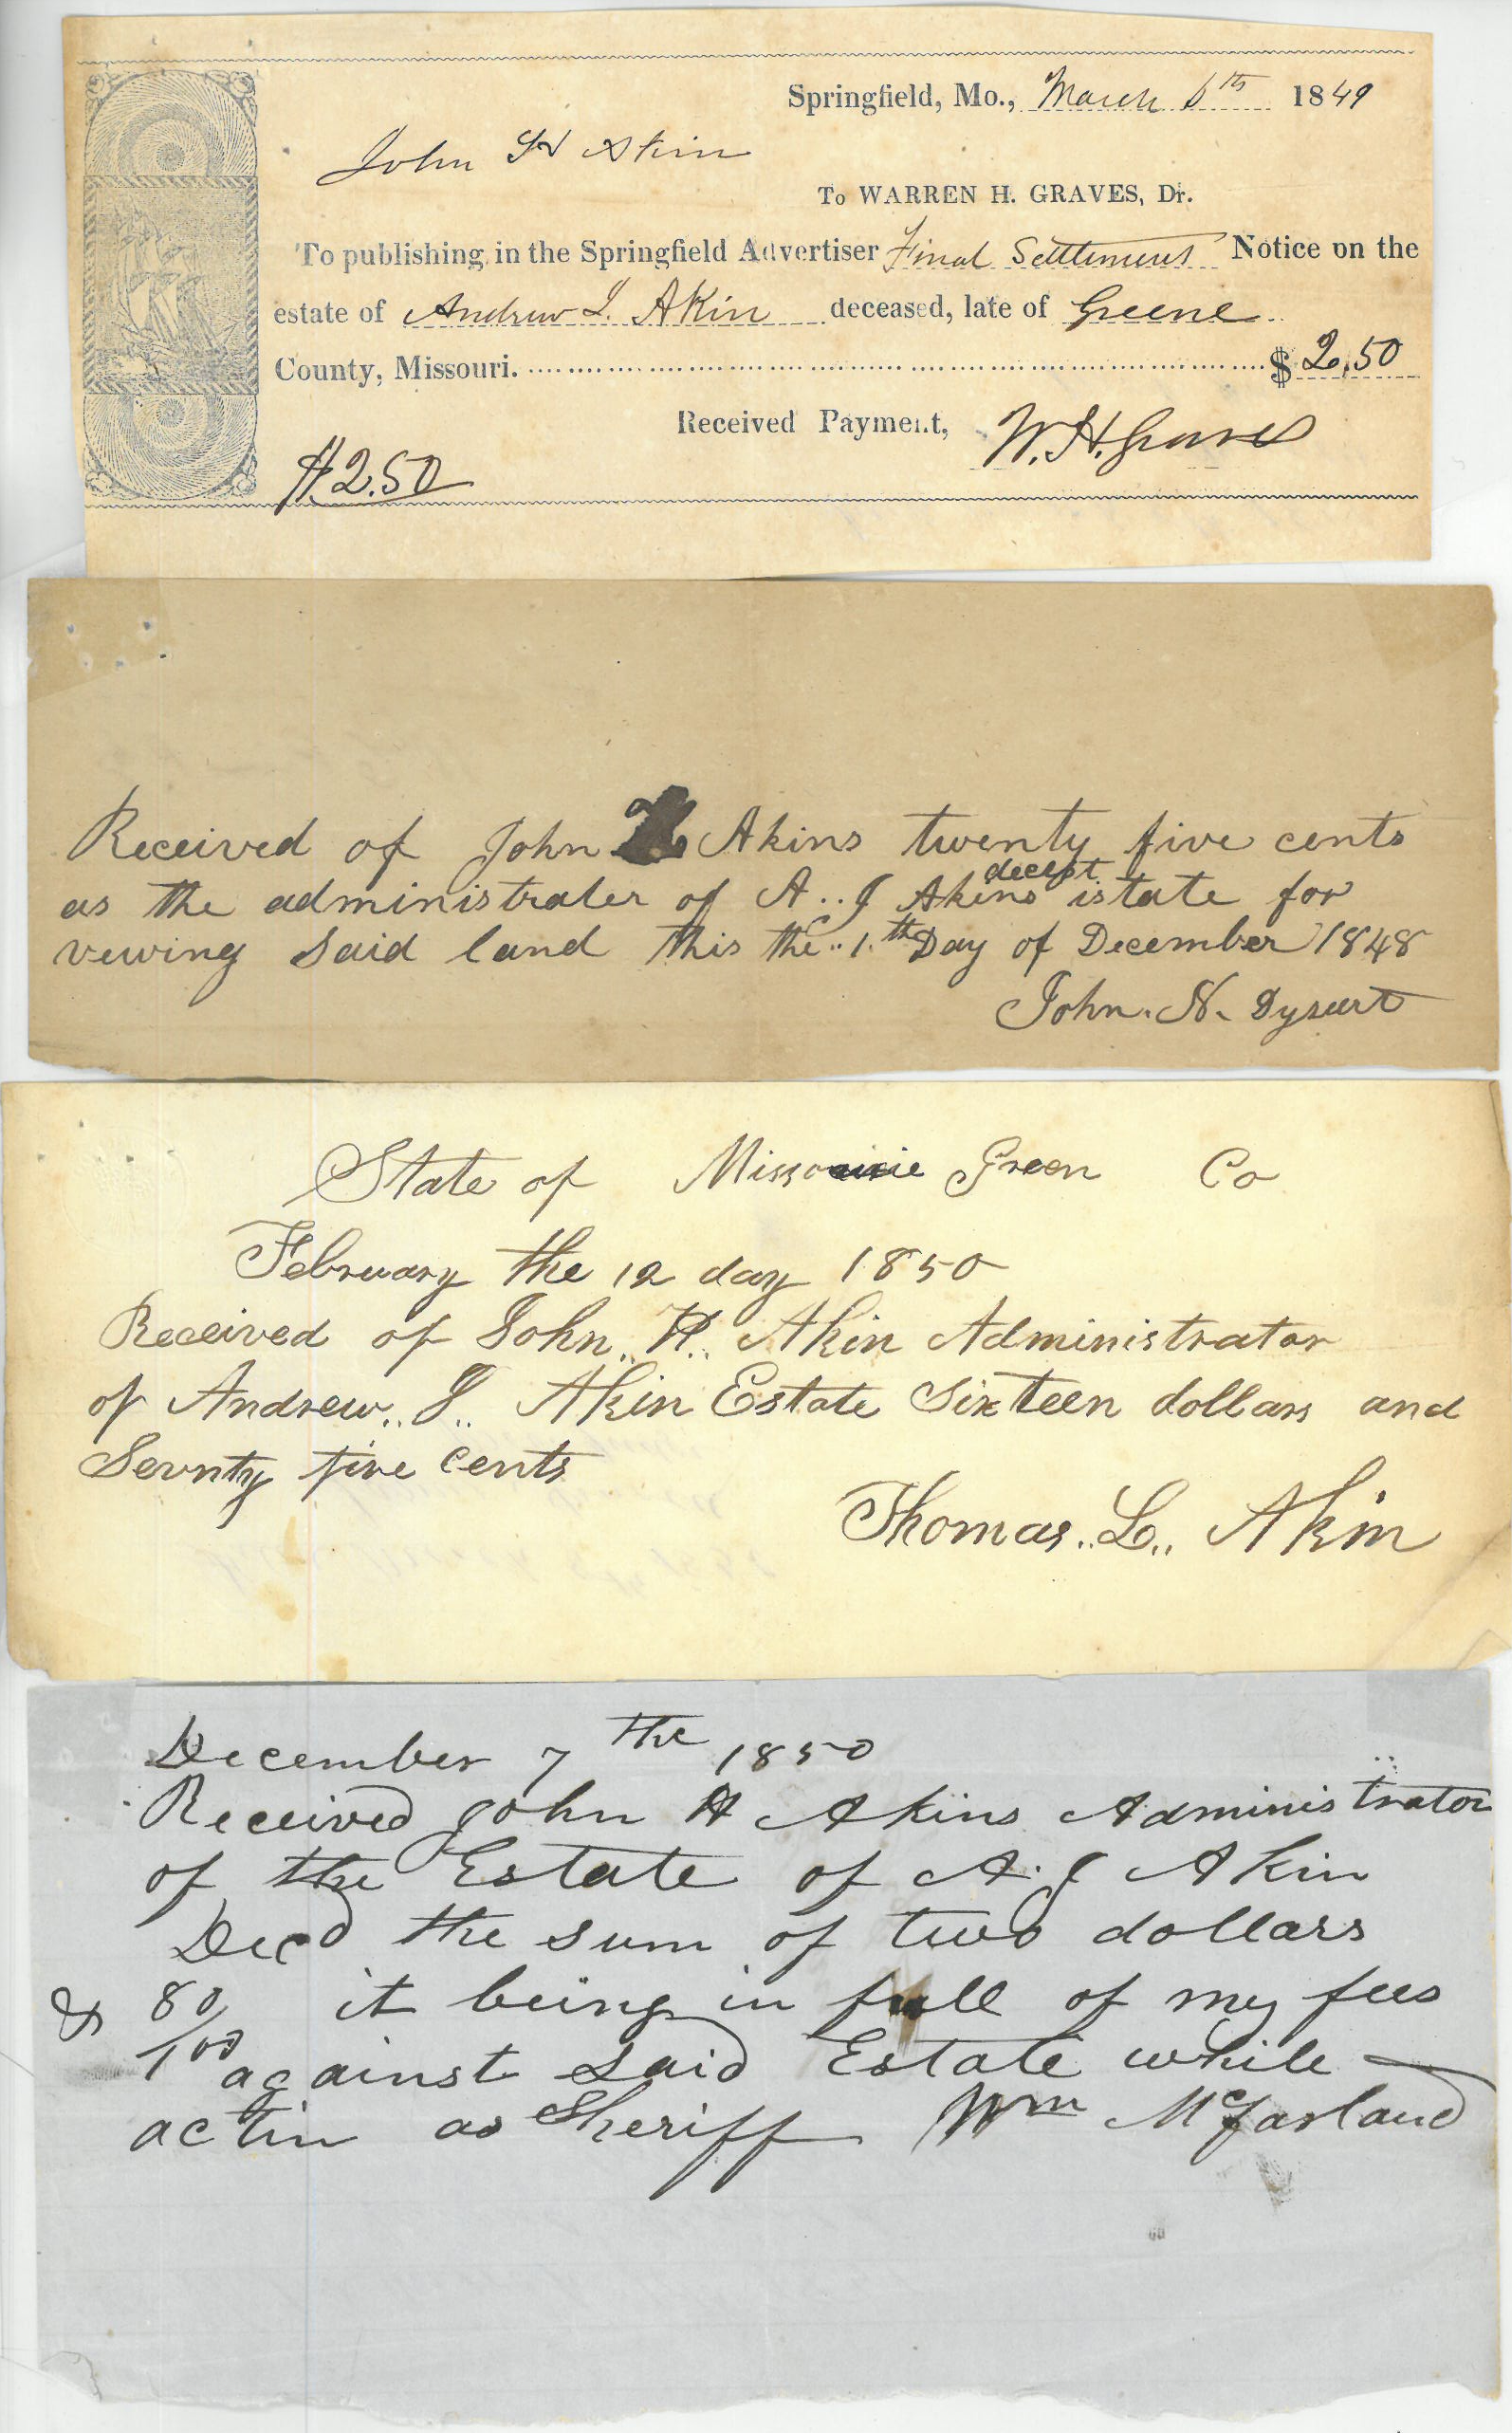 Springfield, Mo., March 6th 1849
John H Akin
To WARREN H. GRAVES, Dr.
To publishing in the Springfield Advertiser Final Settlement Notice on the
estate of Andrew J. Akin deceased, late of Greene
County, Missouri. $ 2,50
Received Payment, W. H. Graves
$2.50
Received of John Akins twenty five cents
decest
as the administrater of A..J Akins istate for
vewing Said land this the..1.th Day of December 1848
John. N. Dysart
State of Green Co
February the 12 day 1850
Received of John.. H.. Akin Administrator
of Andrew.. J.. Akin Estate Sixteen dollars and
Sevnty five Cents
Thomas.. L.. Akin
December 7 the 1850
Received John H Akins Administrator
of the Estate of A. J Akin
Decd the sum of two dollars
& 80/100 it being in full of my fees
against said Estate while
actin as Sheriff Wm McFarland